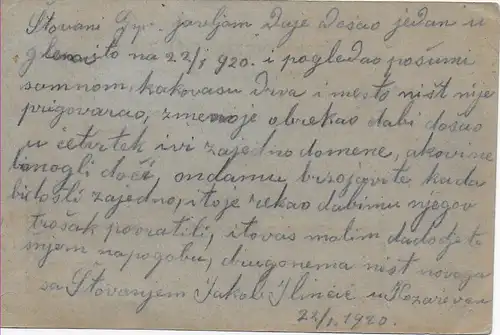 Štovani Gosp. javljam Vuje došao jedan u
glenislo na 22/I 920. i pogledao pošumi
samnom, kakovasu drva i mesto ništ nije
prigovarao, zmenoje obrekao dabi došao
u četvrtek ivi zajedno domene, akovine
bimogli doći, ondamu brzojavite, kada
bitošli zajedno, itoje rekao dabimu njegov
trošak povratili, itovas malim dadodjete
snjem napogobu, drugonema ništ novoga
sa Štovanjem Jakob Ilinčić u Kozarevcu
22/I 1920.